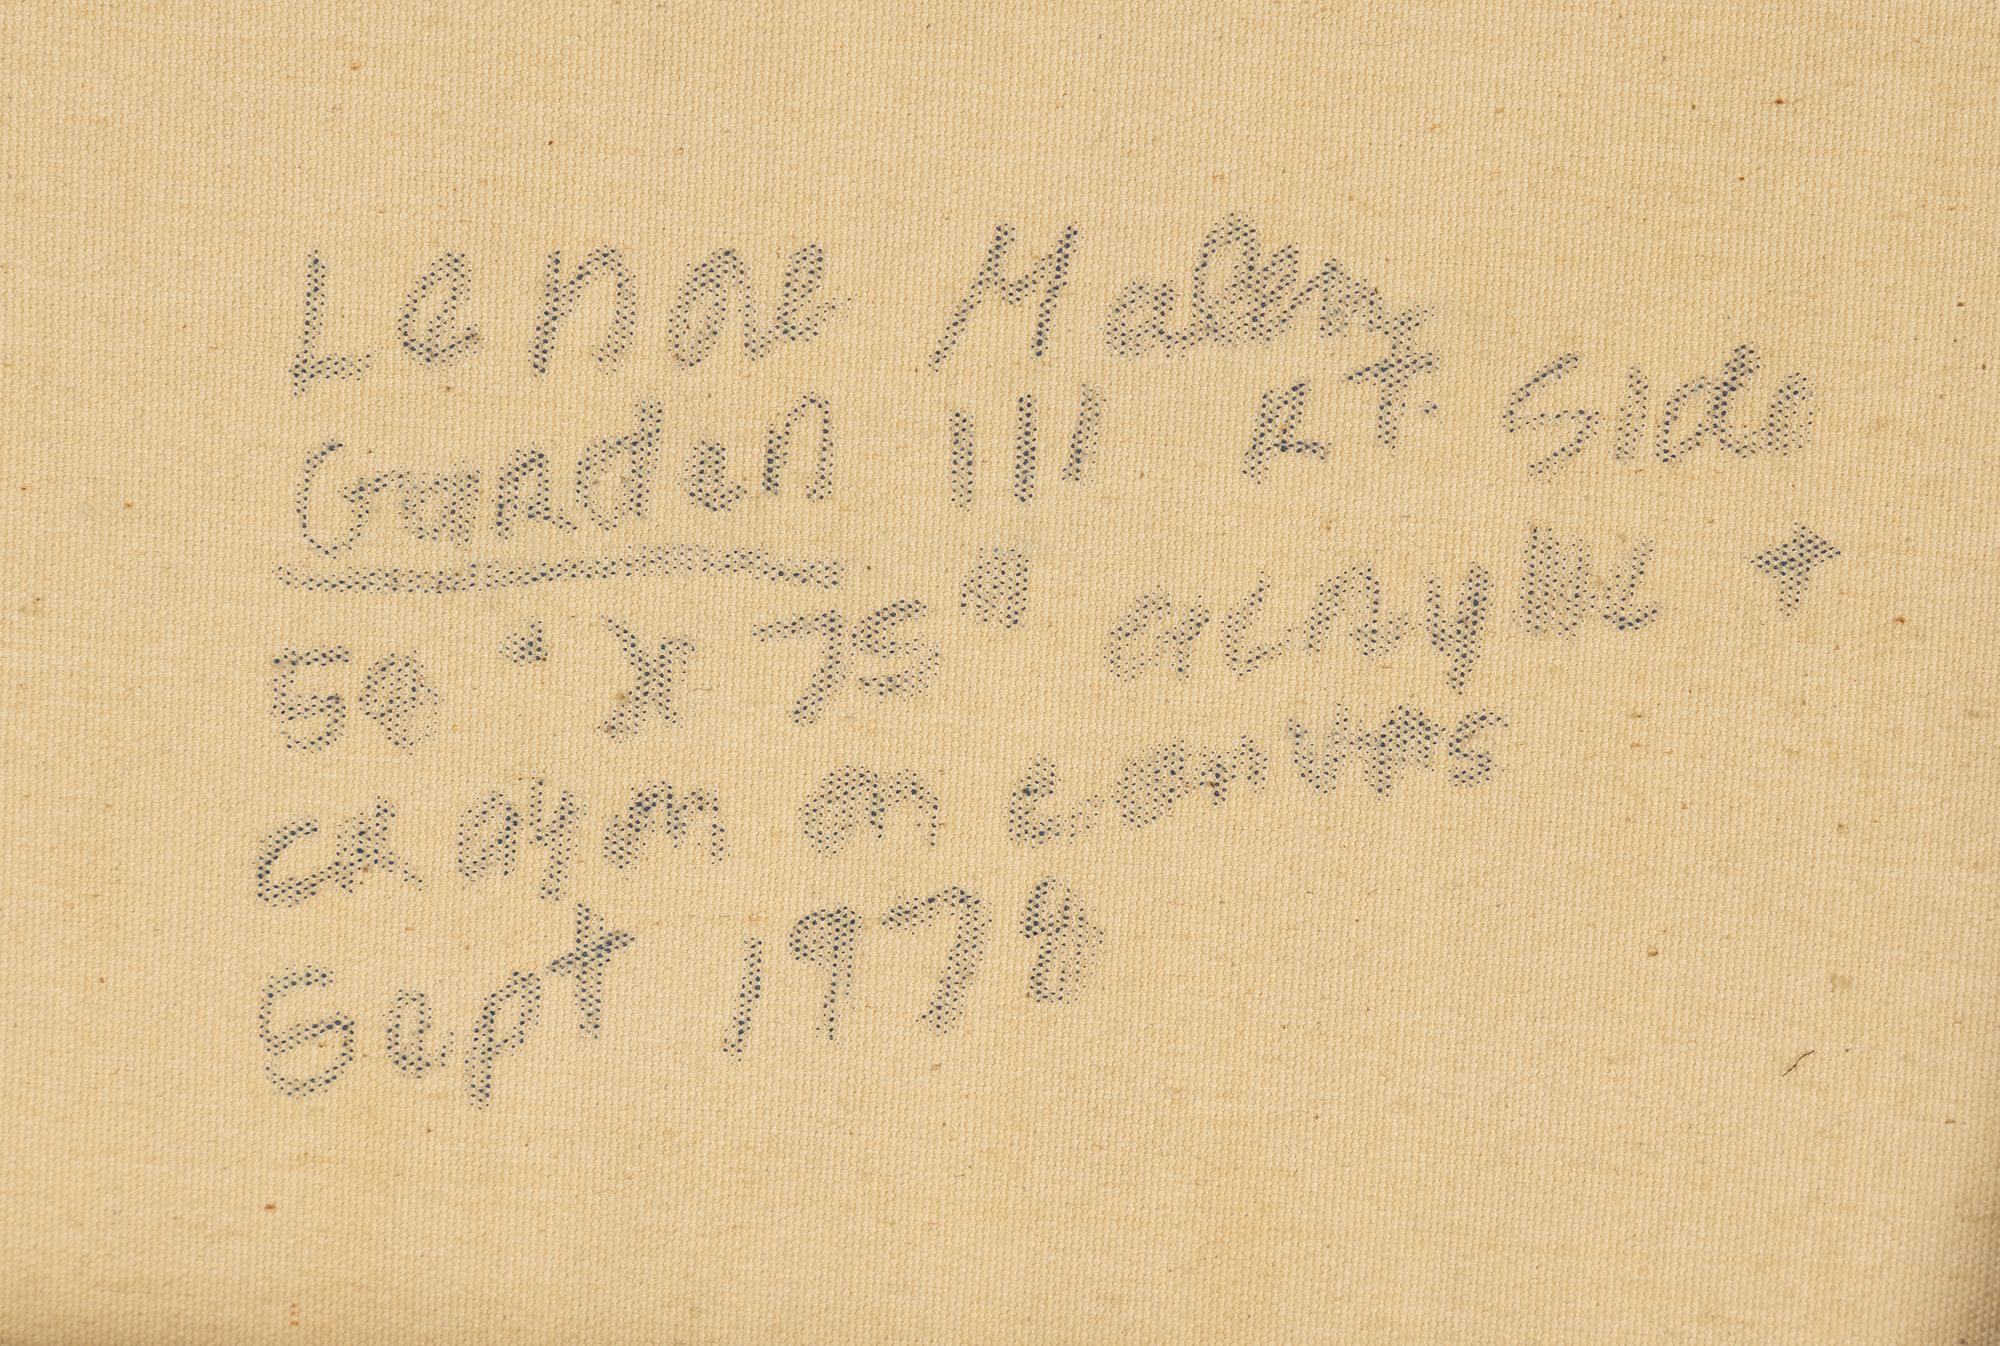 Lenore Malen
Garden III RT. Side
50" X 75" acrylic +
crayon on canvas
Sept 1978